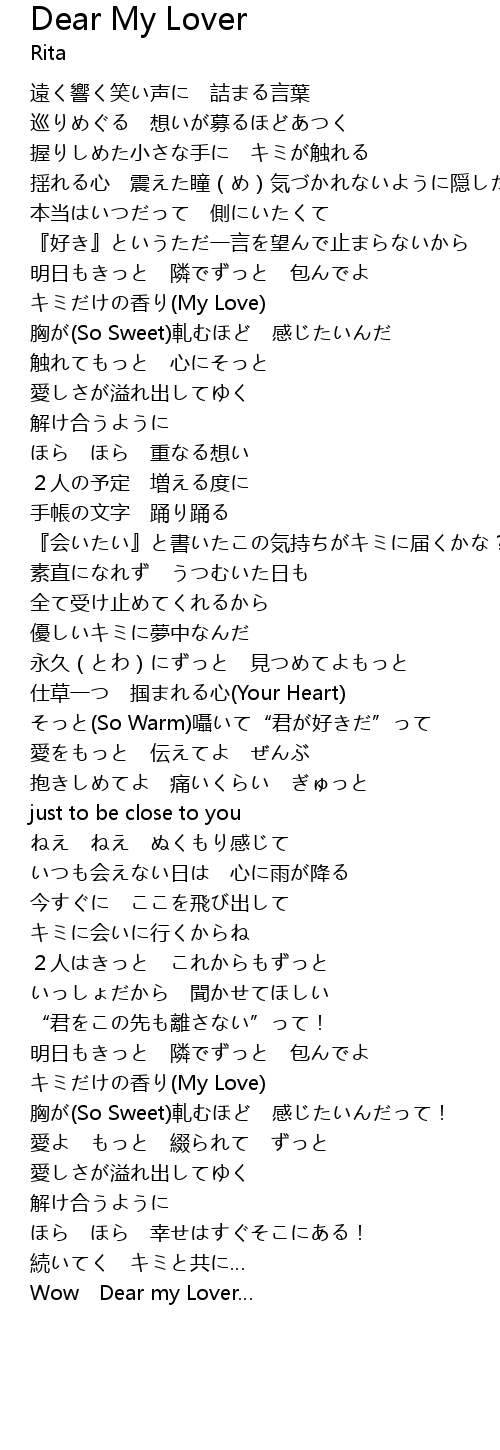 Dear My Lover
Rita
遠く響く笑い声に　詰まる言葉
巡りめぐる　想いが募るほどあつく
握りしめた小さな手に　キミが触れる
揺れる心　震えた瞳（め）気づかれないように隠した
本当はいつだって　側にいたくて
『好き』というただ一言を望んで止まらないから
明日もきっと　隣でずっと　包んでよ
キミだけの香り(My Love)
胸が(So Sweet)軋むほど　感じたいんだ
触れてもっと　心にそっと
愛しさが溢れ出してゆく
解け合うように
ほら　ほら　重なる想い
２人の予定　増える度に
手帳の文字　踊り踊る
『会いたい』と書いたこの気持ちがキミに届くかな？
素直になれず　うつむいた日も
全て受け止めてくれるから
優しいキミに夢中なんだ
永久（とわ）にずっと　見つめてよもっと
仕草一つ　掴まれる心(Your Heart)
そっと(So Warm)囁いて“君が好きだ”って
愛をもっと　伝えてよ　ぜんぶ
抱きしめてよ　痛いくらい　ぎゅっと
just to be close to you
ねえ　ねえ　ぬくもり感じて
いつも会えない日は　心に雨が降る
今すぐに　ここを飛び出して
キミに会いに行くからね
２人はきっと　これからもずっと
いっしょだから　聞かせてほしい
“君をこの先も離さない”って！
明日もきっと　隣でずっと　包んでよ
キミだけの香り(My Love)
胸が(So Sweet)軋むほど　感じたいんだって！
愛よ　もっと　綴られて　ずっと
愛しさが溢れ出してゆく
解け合うように
ほら　ほら　幸せはすぐそこにある！
続いてく　キミと共に…
Wow　Dear my Lover…